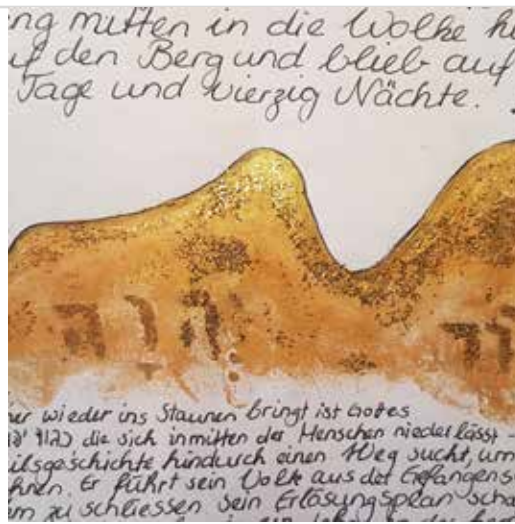 ng mitten in die Wolke h
uf den Berg und blieb auf
Tage und vierzig Nächte.
her wieder ins Staunen bringt ist Gottes
die sich inmitten der Menschen niederlässt -
ilsgeschichte hindurch einen Weg sucht, um
hnen. Er führt sein Volk aus der Gefangens
m zu schliessen sein Erlösungsplan scha